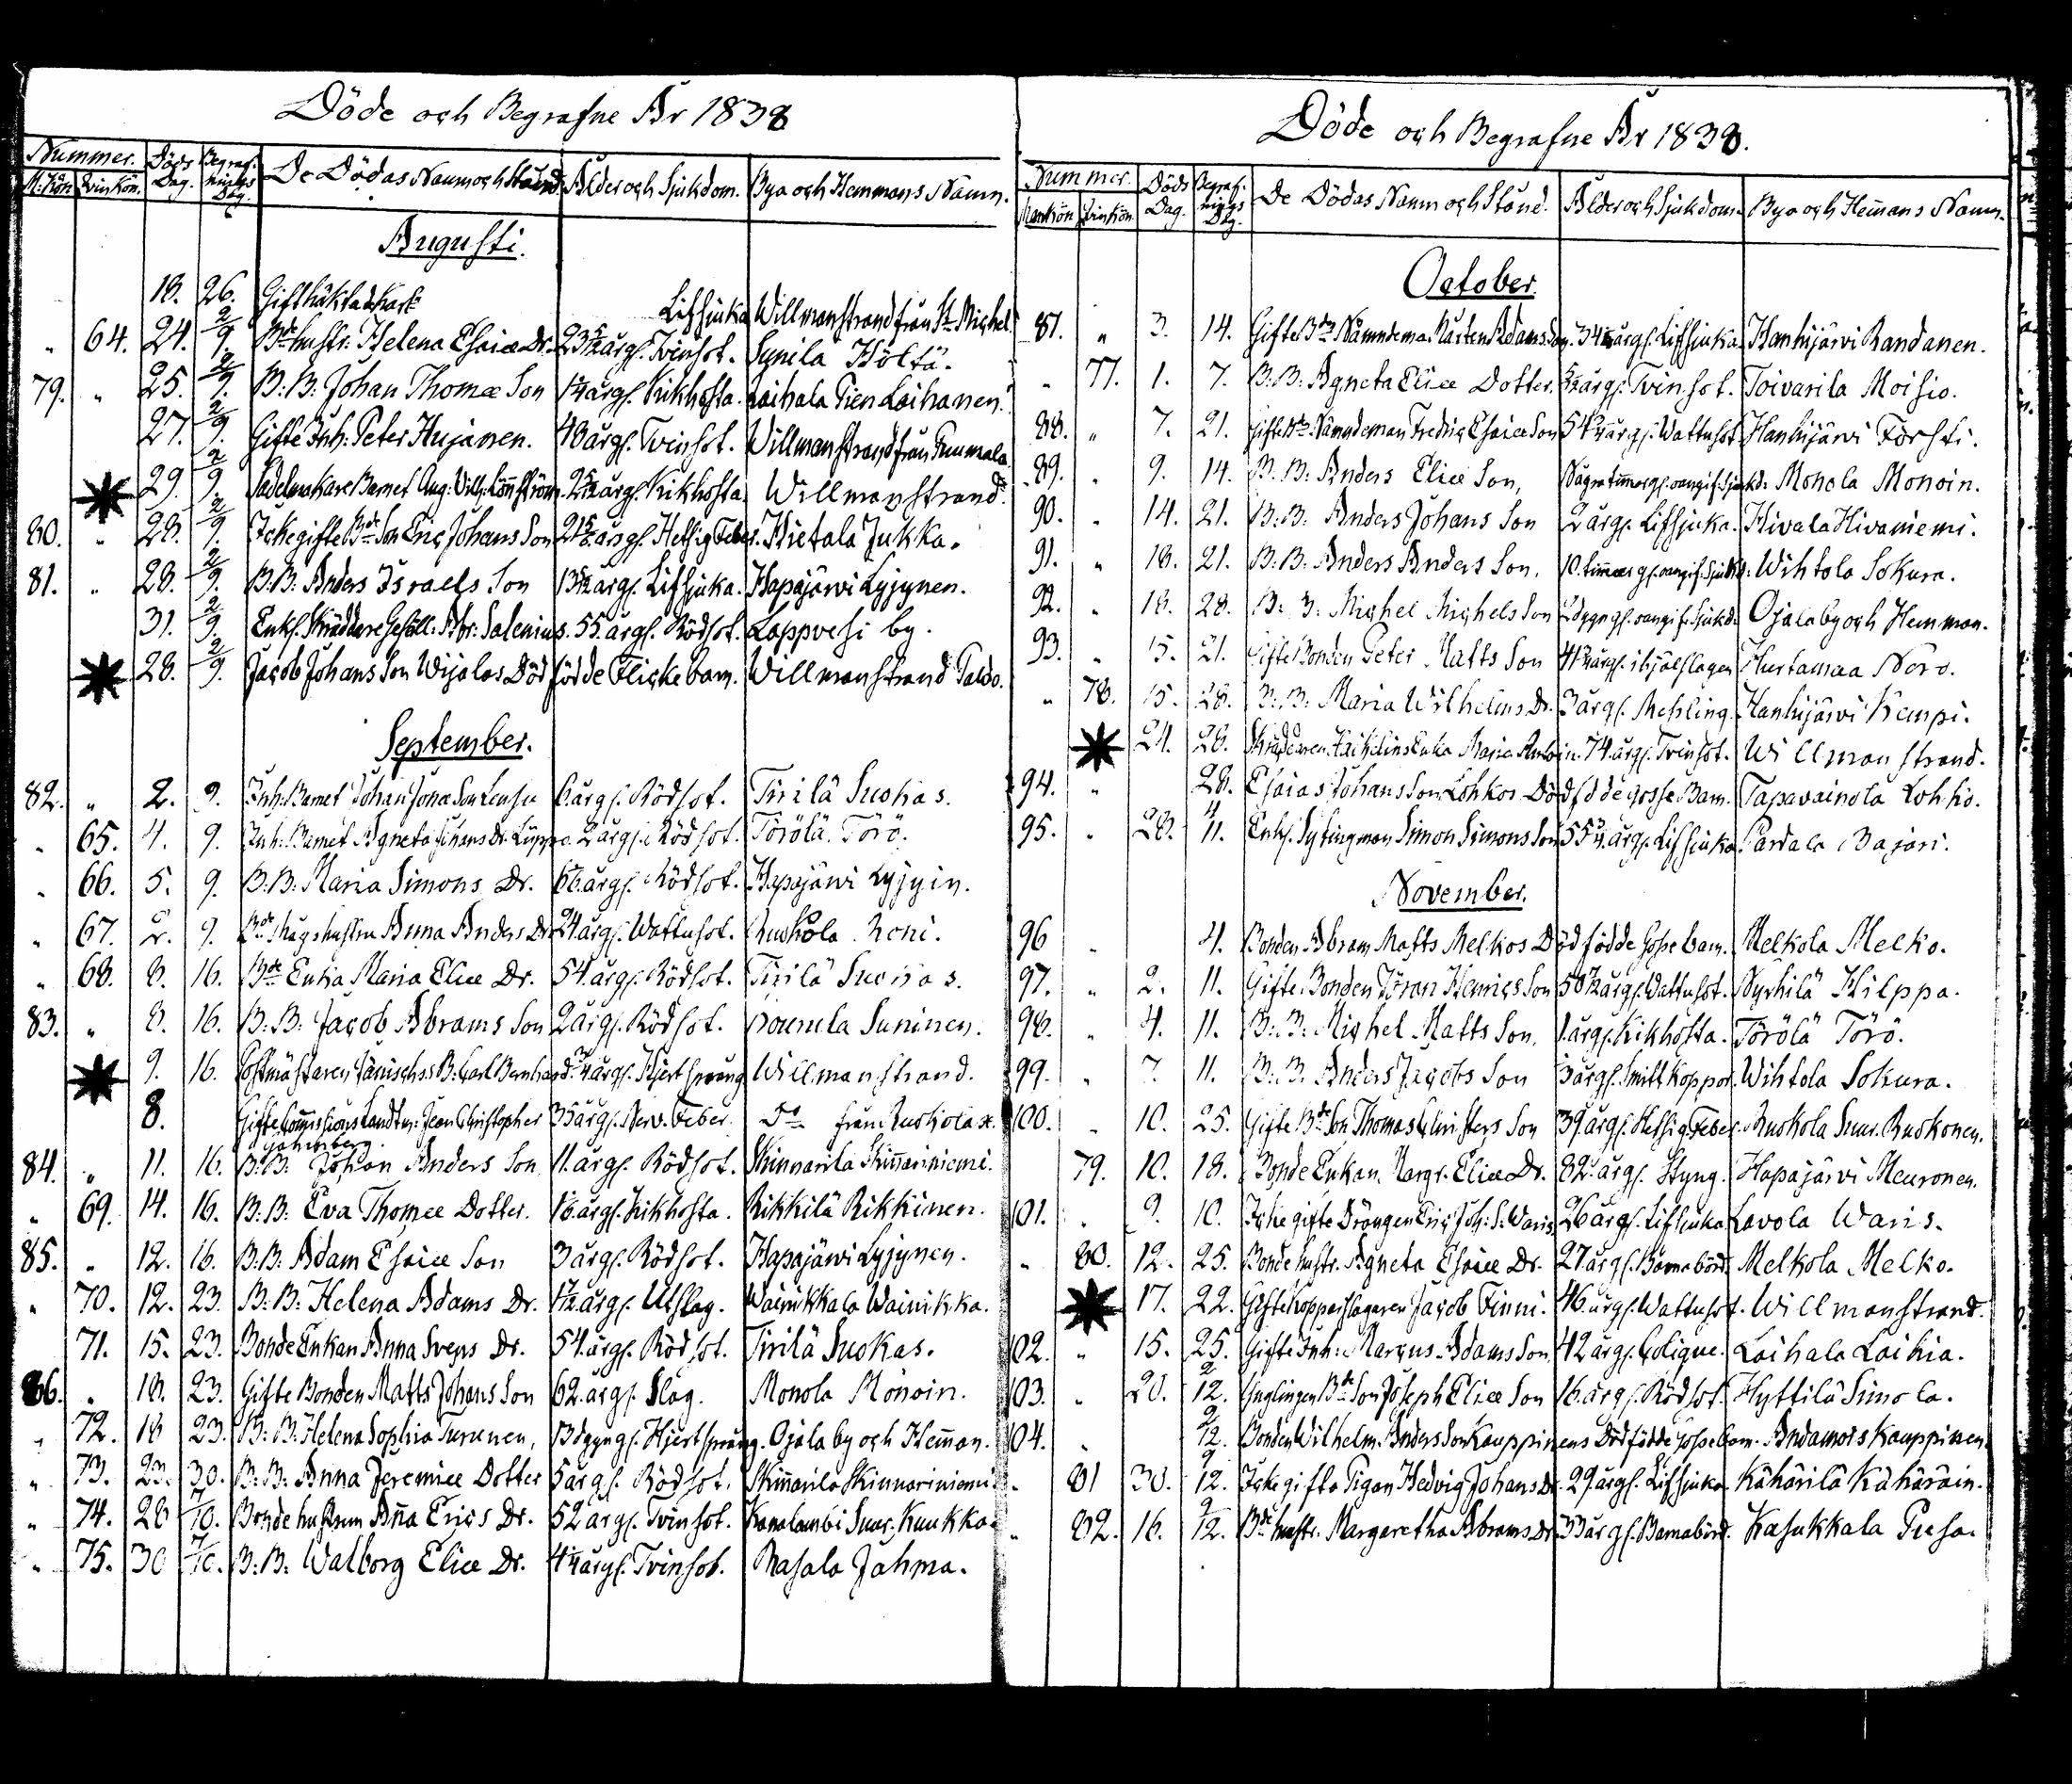 Döde och Begrafne År 1838
Nummer. Döds Dag. Begraf:nings Dag. De Dödas Namn och Stånd. Ålder och Sjukdom. Bya och Hemmans Namn.
M:kön Qvinkön.
Augusti.
18. 26. Gift häktad Karl Lifsjuka Willmanstrand från St Michel.
" 64. 24. 2/9. Bde hustr. Helena Esaiæ Dr. 23 5/12 årgl. Tvinsot. Synila Höltä.
79. " 25. 2/9. B: B: Johan Thomæ Son 1/4 årgl. Kikhosta. Laihala Pien Laihanen.
27. 2/9. Gifte Inh: Peter Hujanen. 48 årgl. Tvinsot. Willmanstrand från Puumala
29. 2/9. Sadelmakare Barnet Aug: Vilh: Lönnström 2 5/12 årgl. Kikhosta Willmanstrand.
80. " 28. 2/9. Icke gifte Bde Son Eric Johans Son 21 5/6 årgl. Hetsig Feber. Hietala Jukka.
81. " 28. 2/9. B: B: Anders Israels Son 13 5/12 årgl. Lifsjuka. Hapajärwi Lyjynen.
31. 2/9. Enkl. Skräddare Gesäll: Abr: Salenius. 55 årgl. Rödsot. Lappvesi by.
28. 2/9. Jacob Johans Son Wijalas Död födde Flicke barn. Willmanstrand Paldo.
September.
82. " 2. 9. Inh: Barnet Johan Jonæ Son Lensu 6 årgl. Rödsot. Tirilä Suokas.
" 65. 4. 9. Inh: Barnet Agneta Johans Dr. Luppa 2 årgl. Rödsot. Törölä Törö.
" 66. 5. 9. B: B: Maria Simons Dr. årgl. Rödsot. Hapajärwi Lyjyin.
" 67. 2. 9. Bde Mågs hustru Anna Anders Dr 24 årgl. Wattusot. Ruokola Roni.
" 68. 8. 16. Bde Enka Maria Eliæ Dr. 54 årgl. Rödsot. Tirilä Suokas.
83. " 8. 16. B: B: Jacob Abrams Son 2 årgl. Rödsot. Rounula Suninen.
9. 16. Postmästaren Jänischas B: Carl Bernhard. 3/4 årgl. Hjertsprång Willmanstrand.
8. Gifte Comissions Landtm: Jean Christopher 35 årgl. Nerv. Feber. Do från Ruokolax.
84. " 11. 16. B: B: Johan Anders Son 11 årgl. Rödsot. Skinnarila Skinnariniemi.
" 69. 14. 16. B: B: Eva Thomæ Dotter. 1/6 årgl. Kikhosta. Rikkilä Rikkinen.
85. " 12. 16. B: B: Adam Esaiæ Son 3 årgl. Rödsot. Hapajärwi Lyjynen.
" 70. 12. 23. B: B: Helena Adams Dr. 1/12 årgl. Utslag. Wainikkala Wainikka.
71. 15. 23. Bonde Enkan Anna Svens Dr. 54 årgl. Rödsot. Tirilä Suokas.
86. " 18. 23. Gifte Bonden Matts Johans Son 62 årgl. Slag. Monola Monoin.
" 72. 18 23. B: B: Helena Sophia Turunen, 13 dygngl. Hjertsprång. Ojala by och Hemman.
" 73. 23. 30. B: B: Anna Jeremiæ Dotter 5 årgl. Rödsot. Skinnarila Skinnariniemi
" 74. 28 7/10. Bonde hustrun Anna Erics Dr. 52 årgl. Tvinsot. Kanalambi Suur. Kuukka.
" 75. 30 7/10. B: B: Walborg Eliæ Dr. 4 1/4 årgl. Tvinsot. Rasala Jahma.
Döde och Begrafne År 1838.
Nummer. Döds Dag. Begraf:nings Dag. De Dödas Namn och Stånd. Ålder och Sjukdom. Bya och Hemans Namn.
Mankön Qvinkön.
October.
87. " 3. 14. Gifte Bde Nämndeman Mårten Adams Son. 34 årgl. Lifsjuka Hanhijärvi Randanen.
" 77. 1. 7. B: B: Agneta Eliæ Dotter. årgl. Tvinsot. Toivarila Moisio.
88. " 7. 21. Gifte Bde Nämndeman Fredric Esaiæ Son 54 årgl. Wattusot Hanhijärwi Försti.
89. " 9. 14. B: B: Anders Eliæ Son, Några timmar gl. oangif. Sjukd: Monola Monoin.
90. " 14. 21. B: B: Anders Johans Son 2 årgl. Lifsjuka. Hivala Hivaniemi.
91. " 18. 21. B: B: Anders Anders Son. 10. timmar gl. oangif. Sjukd: Wihtola Sokura.
92. " 18. 28. B: B: Michel Michels Son 2 dygngl. oangif. Sjukd: Ojala by och Hemman.
93. " 15. 21. Gifte Bonden Peter Matts Son 41 årgl. ihjälslagen Hurtamaa Noro.
" 78. 15. 28. B: B: Maria Wilhelms Dr. 3 årgl. Messling. Hanhijärwi Kempi.
24. 28. Enka Maria 74 årgl. Tvinsot. Willmanstrand.
94. " 28. Esaias Johans Son Lohkos Död födde Gosse Barn. Tapavainola Lohko.
95. " 28. 4/11. Enkl. Sytingman Simon Simons Son 55 3/4 årgl. Lifsjuka Pardala Bajari.
November.
96 " 4. Bonden Abram Matts Melkos Död födde Gosse barn. Melkola Melko.
97. " 2. 11. Gifte Bonden Jöran Henrics Son 50 årgl. Wattusot. Nyrhilä Hilppa.
98. " 4. 11. B: B: Michel Matts Son, 1 årgl. Kikhosta. Törölä Törö.
99. " 7. 11. B: B: Anders Jacobs Son 3 årgl. Smittkoppor Wihtola Sokura.
100. " 10. 25. Gifte Bde Son Thomas Christers Son 39 årgl. Hetsig Feber. Ruokola Suur. Ruokonen.
79. 10. 18. Bonde Enkan Margr. Eliæ Dr. 82 årgl. Styng. Hapajärvi Meuronen.
101. " 9. 18. Icke gifte Drängen Eric Joh: S. Waris 26 årgl. Lifsjuka Lavola Waris.
" 80. 12. 25. Bonde hustr. Agneta Esaiæ Dr. 27 årgl. Barnabörd. Melkola Melko.
17. 22. Gifte Kopparslagaren Jacob Finni. 46 årgl. Wattusot. Willmanstrand.
102. " 15. 25. Gifte Inh: Marcus Adams Son 42 årgl. Colique. Laihala Laihia.
103. " 20. 2/12. Ynglingen Bde Son Joseph Eliæ Son 16 årgl. Rödsot. Hyttilä Simola.
104. " 2/12. Bonden Wilhelm Anders Son Kauppinens Död födde Gosse barn. Andamois Kauppinen
" 81 30. 2/12. Icke gifta Pigan Hedvig Johans Dr. 29 årgl. Lifsjuka. Kähärilä Kähäräin.
" 82. 16. 2/12. Bde hustr. Margaretha Abrams Dr 33 årgl. Barnabörd. Kasukkala Pusa.